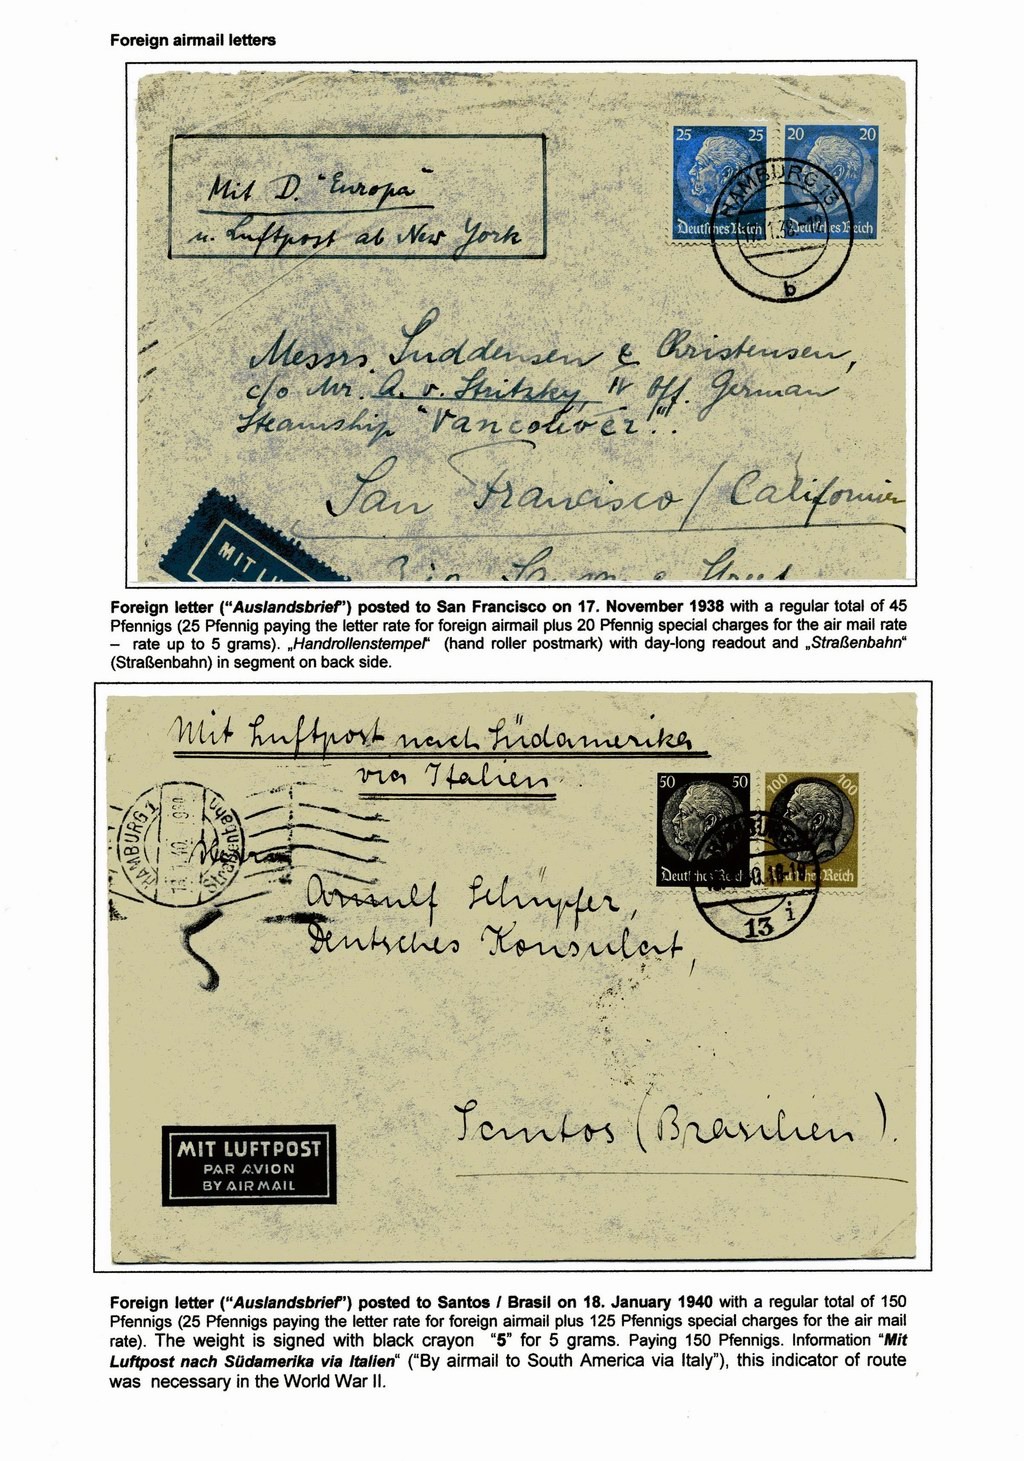 Foreign airmail letters
25 25 20 20
Mit D. "Europa"
u. Luftpost ab New York
HAMBURG 13
Deutsches Reich Deutsches Reich
b
Messrs. Luddensen & Christensen,
c/o Mr. A. v. Stritzky, IV Off. German
Steamship "Vancouver"!
San Francisco / Californien
MIT LU
Foreign letter (“Auslandsbrief”) posted to San Francisco on 17. November 1938 with a regular total of 45
Pfennigs (25 Pfennig paying the letter rate for foreign airmail plus 20 Pfennig special charges for the air mail rate
– rate up to 5 grams). „Handrollenstempel“ (hand roller postmark) with day-long readout and „Straßenbahn“
(Straßenbahn) in segment on back side.
Mit Luftpost nach Südamerika
via Italien
50 50 100 100
HAMBURG 1
Straßenbahn
HAMBURG
Herrn
Deutsches Reich Deutsches Reich
Arnulf Schüpfer,
13 i
Deutsches Konsulat,
5
Santos (Brasilien).
MIT LUFTPOST
PAR AVION
BY AIR MAIL
Foreign letter (“Auslandsbrief”) posted to Santos / Brasil on 18. January 1940 with a regular total of 150
Pfennigs (25 Pfennigs paying the letter rate for foreign airmail plus 125 Pfennigs special charges for the air mail
rate). The weight is signed with black crayon “5” for 5 grams. Paying 150 Pfennigs. Information “Mit
Luftpost nach Südamerika via Italien“ (“By airmail to South America via Italy”), this indicator of route
was necessary in the World War II.